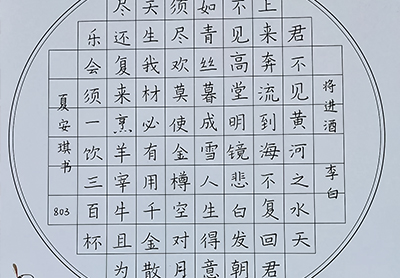 将进酒 李白
君不见黄河之水天
上来奔流到海不复回君
不见高堂明镜悲白发朝
如青丝暮成雪人生得意
须尽欢莫使金樽空对月
天生我材必有用千金散
尽还复来烹羊宰牛且为
乐会须一饮三百杯
夏安琪书
803